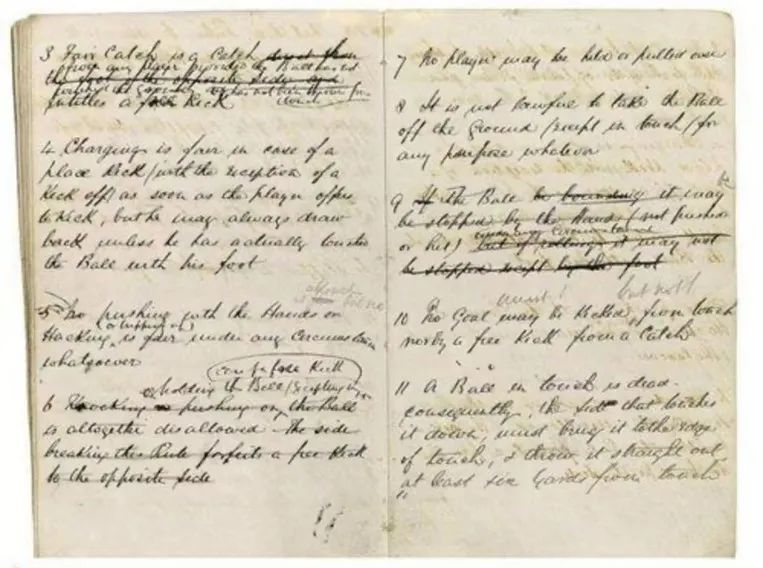 3 Fair Catch is a Catch direct from
from any player provided the Ball has not
the foot of the opposite side and
touched the ground
entitles a free Kick
4 Charging is fair in case of a
place Kick (with the exception of a
Kick off) as soon as the player offers
to Kick, but he may always draw
back unless he has actually touched
the Ball with his foot
5 No pushing with the Hands or
(or tripping up)
Hacking is fair under any Circumstances
whatsoever
Kick
holding the Ball (excepting
6 Knocking or pushing on the Ball
is altogether disallowed The side
breaking this Rule forfeits a free Kick
to the opposite side
7 No player may be held or pulled over
8 It is not lawful to take the Ball
off the Ground (except in touch) for
any purpose whatever
9 If the Ball be bounding it may
be stopped by the Hand (not pushed
under any circumstances
or hit) but if rolling it may not
be stopped except by the foot
must! but not
10 No Goal may be Kicked from touch
nor by a free Kick from a Catch
11 A Ball in touch is dead
consequently the side that touches
it down, must bring it to the edge
of touch, & throw it straight out
at least six yards from touch